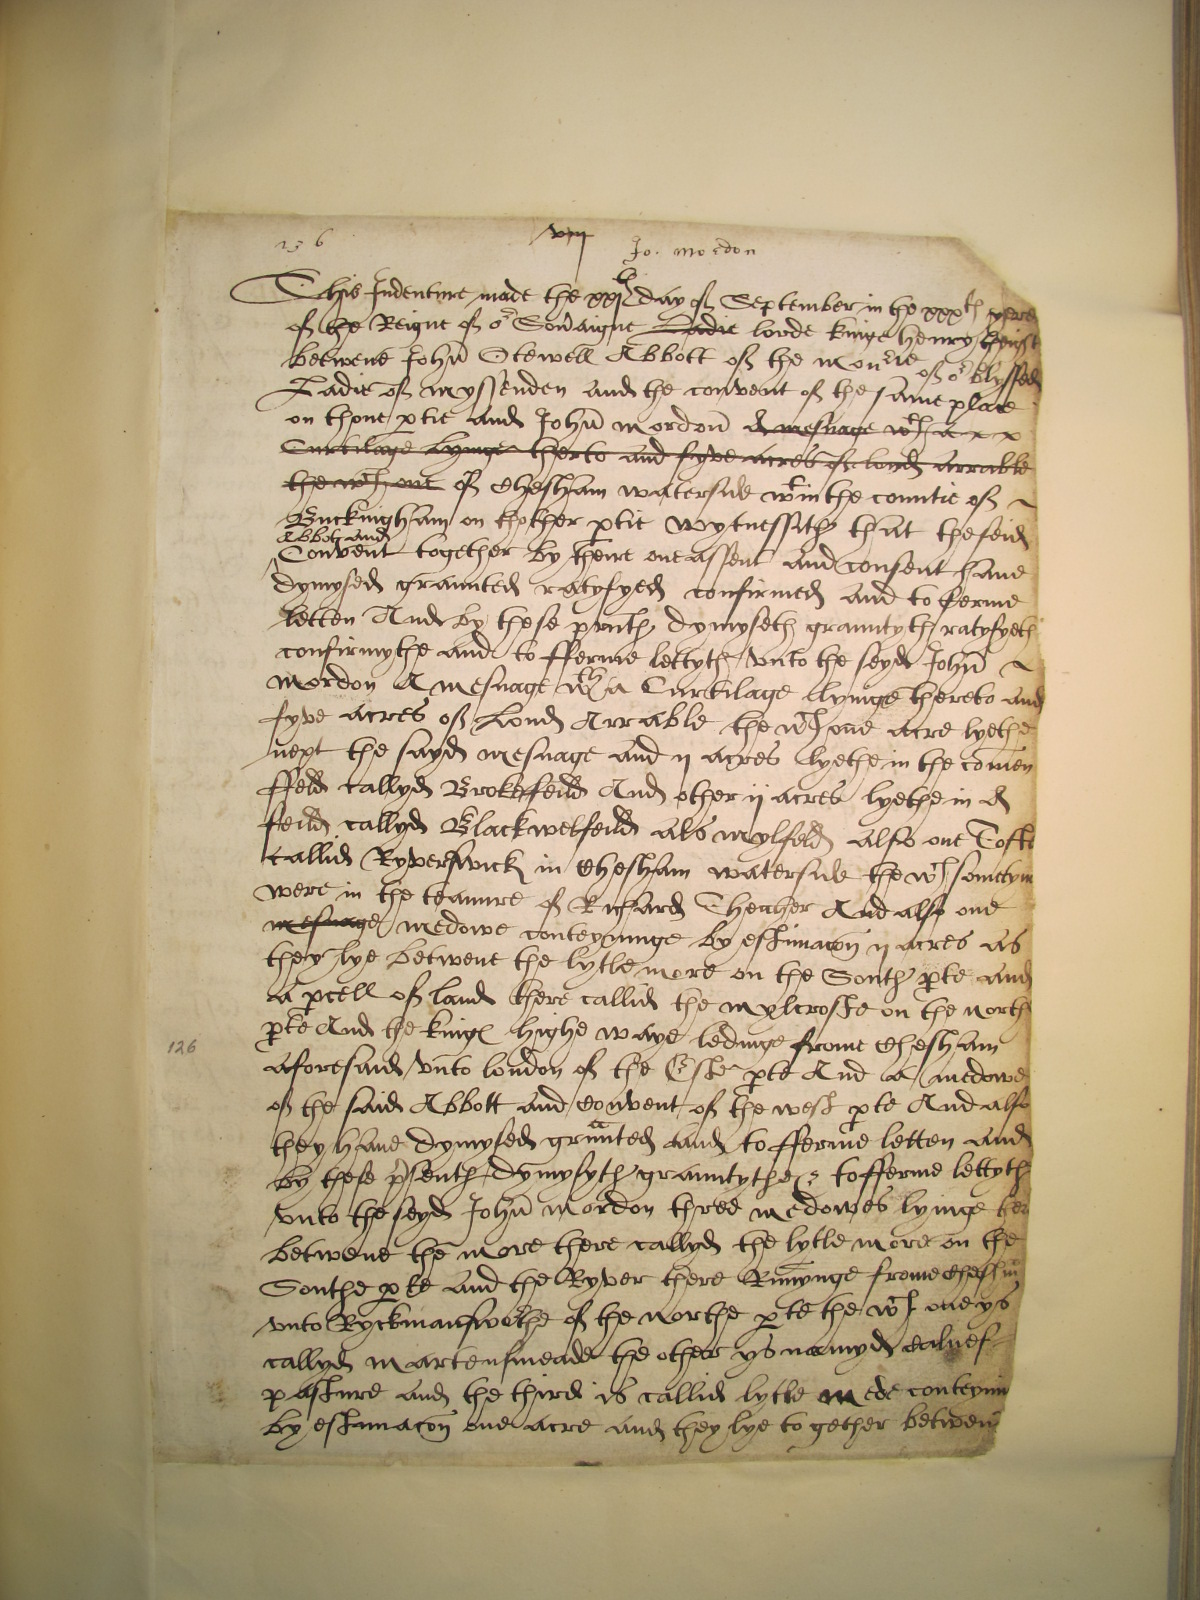 136 viij Jo. Mordon
This Indenture made the xxjth day of September in the xxxth yere
of the Reigne of or Soūaigne Ladie lorde kinge Henry theight
betwene John̄ Otewell Abbott of the monrie of or blyssed
Ladie of myssenden and the convent of the same place
on thone ptie and John̄ mordon̄ A mesuage wth a
Curtilage lyinge therto and fyve acres of lond arrable
the wch one of Chesham waterside wtin the countie of
Buckingham on thother ptie wytnessith that the seid
Abbot and
Convent together by theire one assent and consent haue
dymysed graunted ratyfyed confirmed and to ferme
letten And by these pnth dymyseth grauntyth ratyfyeth
confirmythe and to fferme lettyth vnto the seyd John̄
mordon A mesuage wth a Curtilage lyinge thereto and
fyve acres of Lond Arrable the wch one acre lyethe
next the sayd mesuage and ij acres lyethe in the comēn
ffeld callyd Brokefeild And other ij acres lyethe in A
feild callyd Blackwelfeild als mylfeld also one Tofte
callid Ryverswick in Chesham waterside the wch sometym
were in the teanure of Richard Theaher And also one
mesuage medowe conteyninge by estimacōn ij acres as
they lye betwene the lytle more on the South pte and
a pcell of land there callid the mylcrofte on the north
pte And the kinges highe waye ledinge frome Chesham
126
aforesaid vnto london of the Este pte And a medowe
of the said Abbott and Convent of the west pte And also
they haue dymysed graunted and to fferme letten and
by these psenth dymysyth grauntythe & to fferme lettyth
vnto the seyd John̄ mordon three medowes lyinge
betwene the more there callyd the lytle more on the
Southe pte and the Ryver there Rūnynge frome Chesham
vnto Ryckmansworthe of the northe pte the wch one ys
callyd martensmeade the other ys namyd Calues
pasture and the third is callid lytle mede conteynin
by estimacōn one acre and they lye together betwen